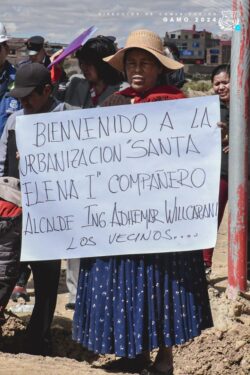 DIRECCIÓN DE COMUNICACIÓN
GAMO 2024
BIENVENIDO A LA
URBANIZACION "SANTA
ELENA I" COMPAÑERO
ALCALDE ING ADHEMAR WILLCARANI
LOS VECINOS....